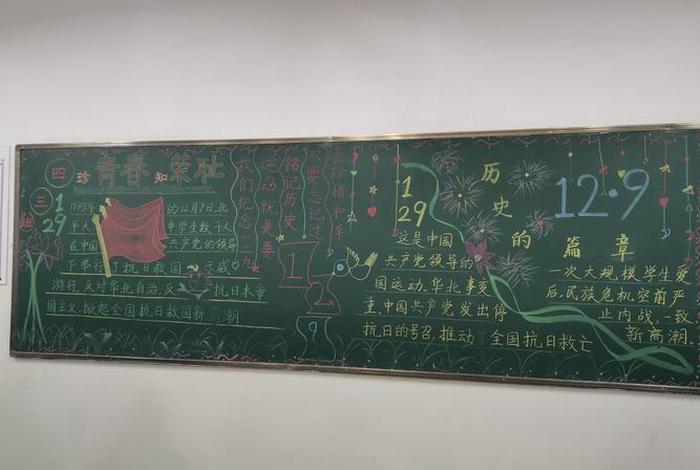 四 珍 青春 知
三
班
1
29
1935年 的12月9日,北
平人 中学生数千人
在中国 共产党的领导
下举行了抗日救国示威
游行,反对华北自治,反 抗日本帝
国主义,掀起全国抗日救国新高潮
我们纪念一二九
运动就是要
铭记历史
不要忘记过
去珍惜和平
1
2
9
1
29
历
史
的
篇 章
12·9
这是中国
共产党领导的
一次大规模学生爱
国运动,华北事变
后,民族危机空前严
重,中国共产党发出停
止内战,一致
抗日的号召,推动 全国抗日救亡
新高潮.